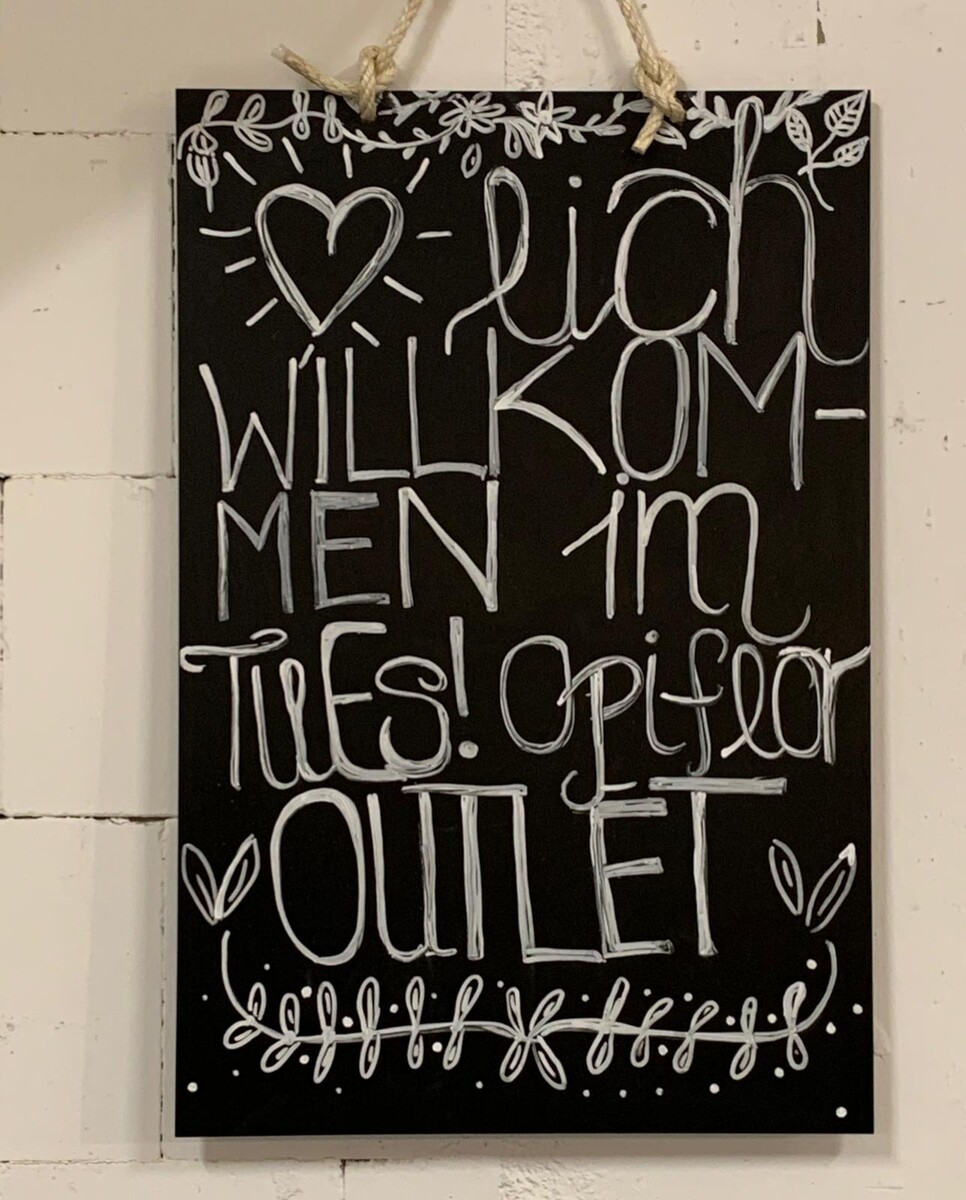 ♡lich
WILLKOM-
MEN im
TuEs! Opiflor
OUTLET